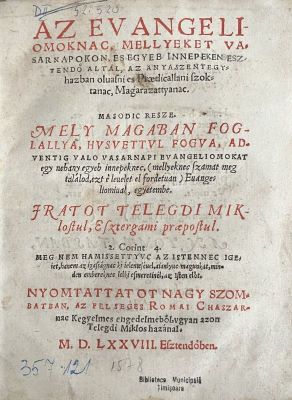 52.520
AZ EVANGELI-
OMOKNAC, MELLYEKET VA-
SARNAPOKON, ES EGYEB INNEPEKEN ESZ-
TENDŐ ALTAL, AZ ANYASZENTEGY-
hazban oluasni es Prædicallani szok-
tanac, Magarazattyanac.
MASODIC RESZE.
MELY MAGABAN FOG-
LALLYA, HVSVETTVL FOGVA, AD-
VENTIG VALO VASARNAPI EVANGELIOMOKAT
egy nehany egyeb innepeknec, (mellyeknec szamat meg
talalod, ezt è leuelet el fordetuan) Euange-
liomiual, egyetembe.
IRATOT TELEGDI MIK-
lostul, Esztergami præpostul.
2. Corint 4.
MEG NEM HAMISSETTYVC AZ ISTENNEC IGE-
iet, hanem az igassagnac ki
minden embereknec lelki esmeretinel, az isten elöt.
NYOMTATTATOT NAGY SZOM-
BATBAN, AZ FELSEGES ROMAI CHASZAR-
nac Kegyelmes engedelmeböl, ugyan azon
Telegdi Miklos hazánal.
M. D. LXXVIII. Esztendöben.
357.121
1578
Biblioteca Municipală
Timişoara